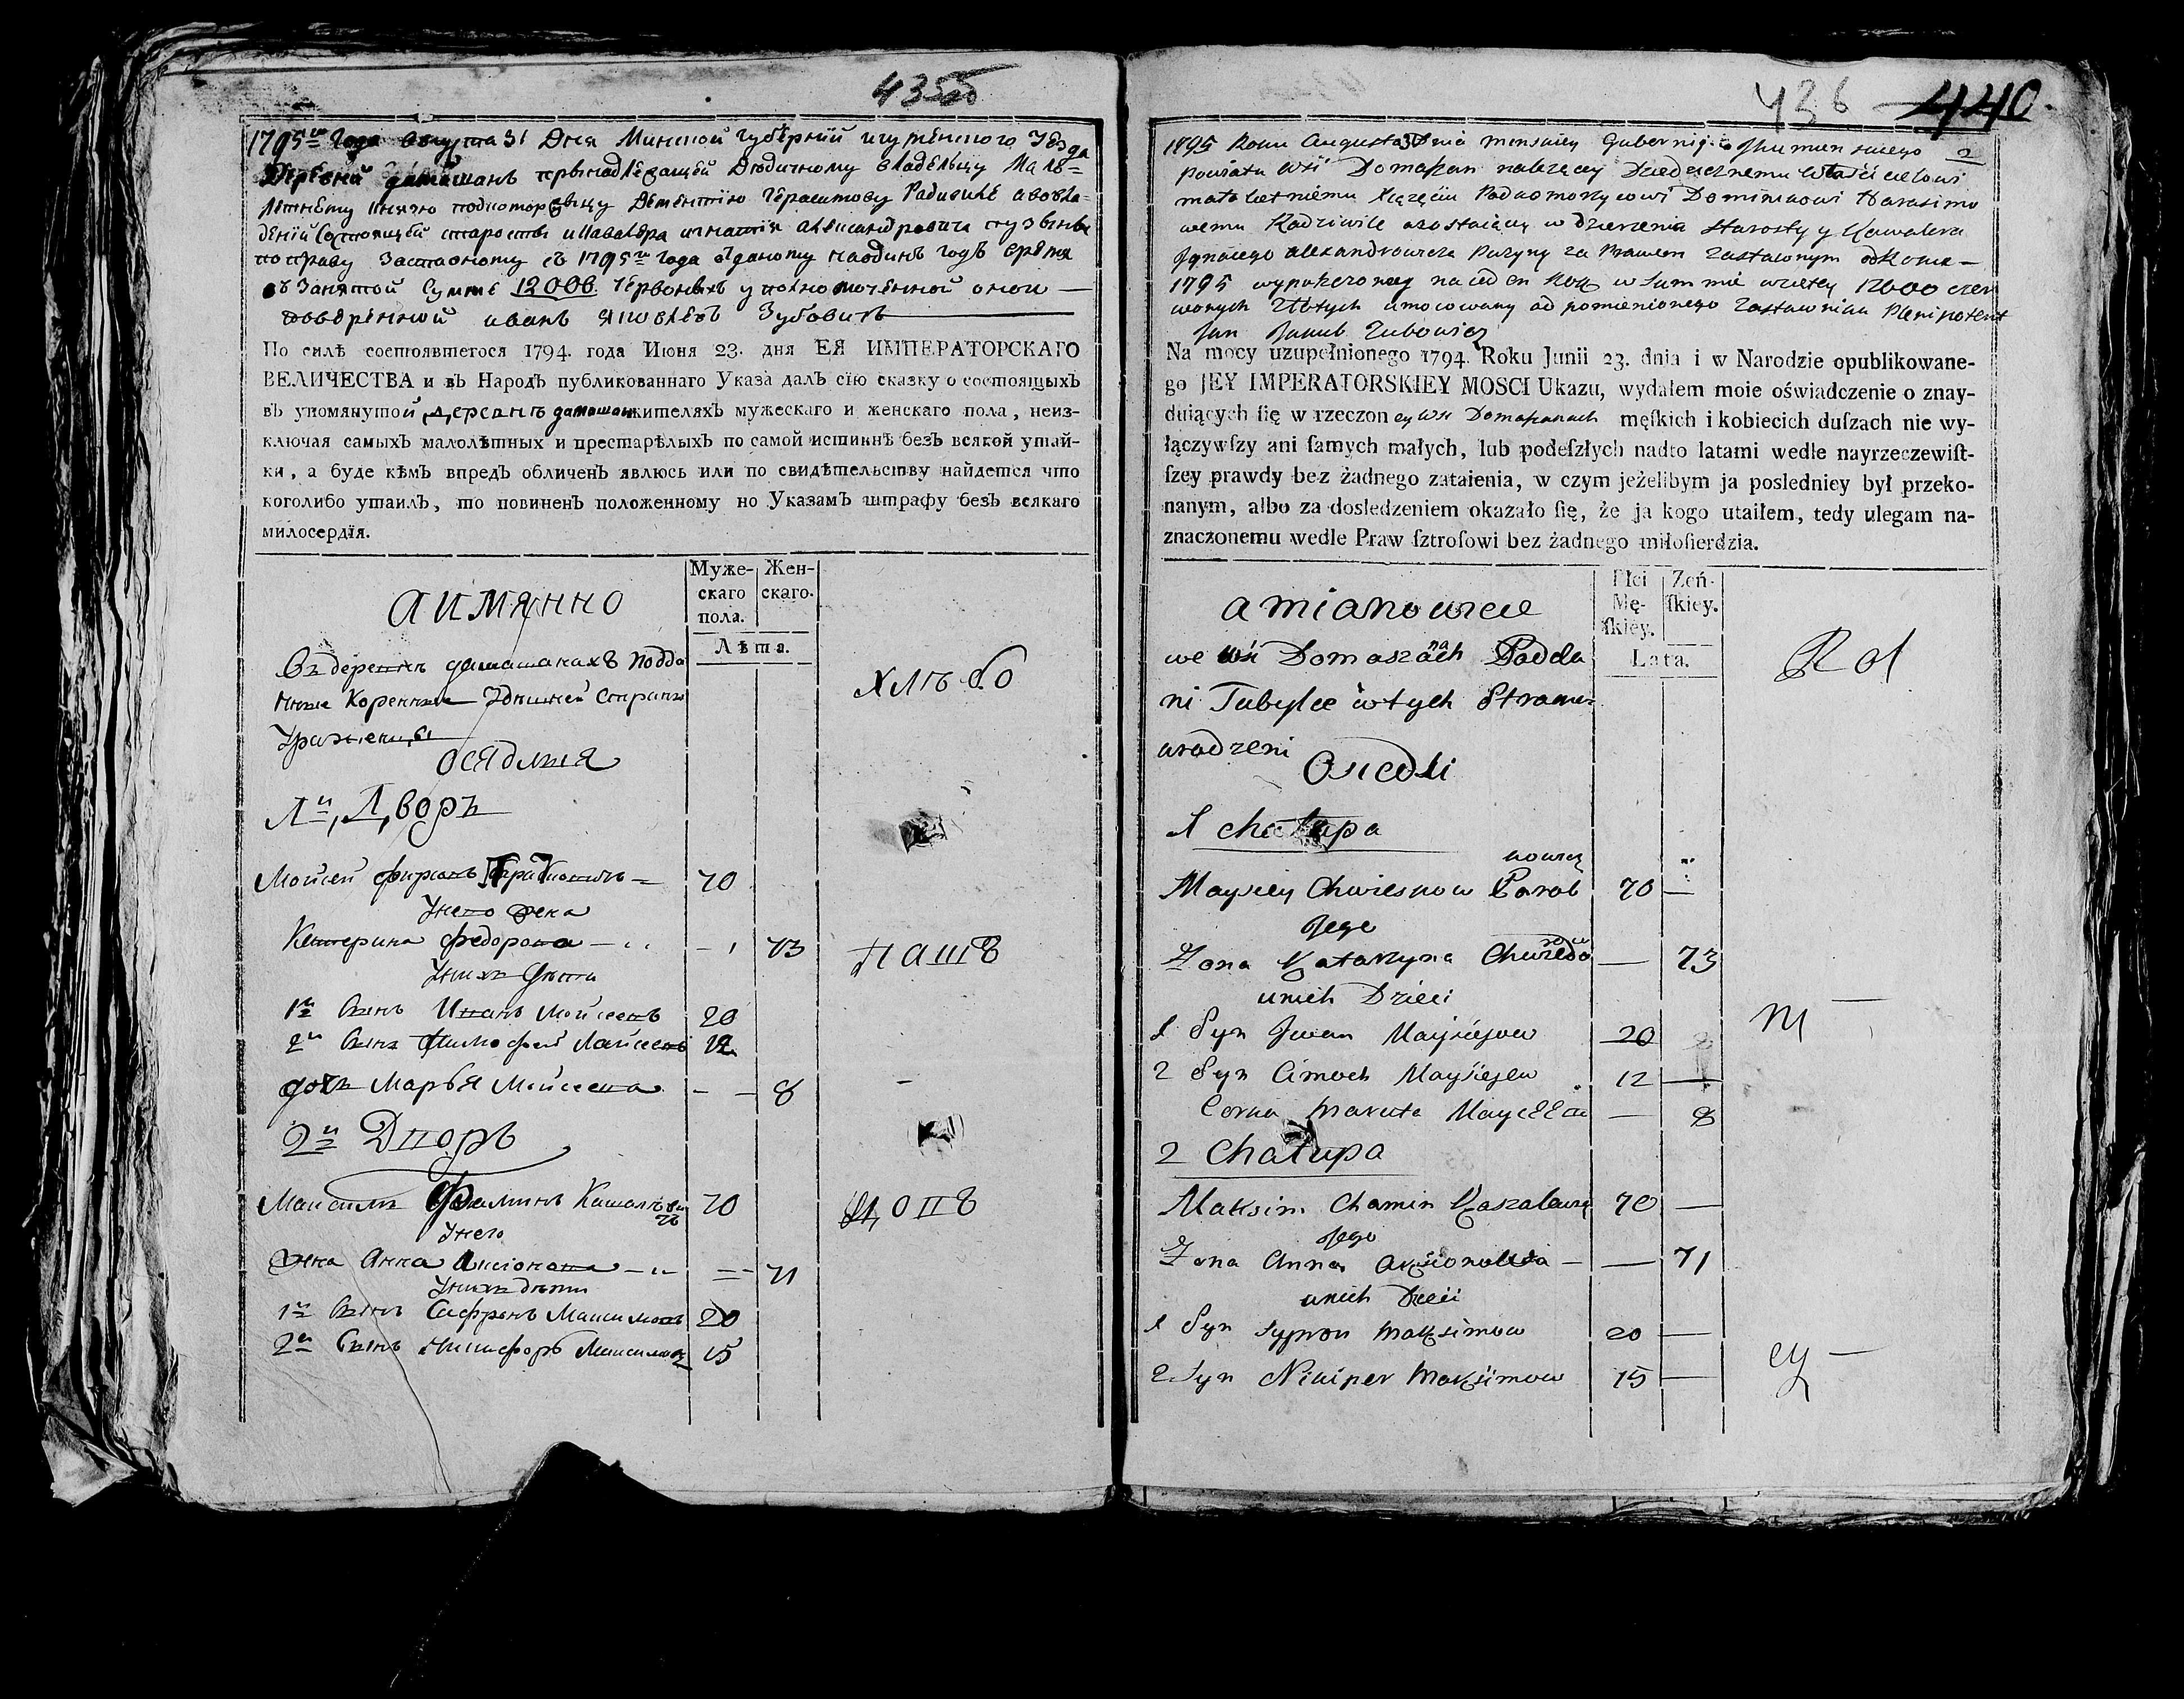 435об
1795го Года августа 31 Дня Минской Губернии игуменского Уезда
Деревни дамашанъ принадлежащей Дѣдичному владельцу Мало=
летнему князю подкоморжицу Доментию Герасимову Радивиле а во вла=
дении Состоящей старосты и Кавалера игнатия александровича пузыны
по праву Заставному съ 1795го года отданому на одинъ годъ время
въ Занятой Сумме 12000 червоныхъ уполномоченной оной
доверенной иванъ яковлевъ Зубовичъ
По силѣ состоявшегося 1794. года Июня 23. дня ЕЯ ИМПЕРАТОРСКАГО
ВЕЛИЧЕСТВА и въ Народъ публикованнаго Указа далъ сїю сказку о состоящыхъ
въ упомянутой деревнѣ дамашан жителяхъ мужескаго и женскаго пола, неиз-
ключая самыхъ малолѣтныхъ и престарѣлыхъ по самой истиннѣ безъ всякой утай-
ки, а буде кѣмъ впредъ обличенъ явлюсь или по свидѣтельству найдется что
коголибо утаилъ, то повиненъ положенному но Указамъ штрафу безъ всякаго
милосердїя.
Муже-скаго пола. Жен-скаго.
Лѣта.
а имянно
Въ деревнѣ дамашанахъ подда
ные Коренные Здѣшней Стараны
Урожены
осядлыя
хлѣбо
1й Дворъ
Мойсей 70
У него жена
Катерина федорова 73
пашъ
У нихъ дѣти
1й Сынъ Иванъ Мойсеевъ 20
2й Сынъ Тимофей Мойсеевъ 12
дочь Марья Мойсеева 8
2й Дворъ
Максимъ Фаминъ Кашалевичъ 70
У него
жена Анна Аксіонова 71
У нихъ дѣти
1й Сынъ Сафронъ Максимовъ 20
2й Сынъ Никифоръ Максимовъ 15
436 440.
1795 Roku Augusta 31 Dnia Minskiey Gubernij Ihumenskiego 2
Powiatu Wsi Domaszan należący Dziedzicznemu Właścicielowi
mało letniemu Xiążęciu Podkomorzycowi Dominikowi Harasimo
wemu Radziwile a zostaiący w dzierżeniu Starosty y Kawalera
Ignacego alexandrowicza Puzyny za Prawem zastawnym od Roku
1795 wypuszczoney na ieden Rok w Summie wziętey 12000 czer
wonych Złotych umocowany od pomienionego zastawnika Plenipotent
Jan Jakub Zubowicz
Na mocy uzupełnionego 1794. Roku Junii 23. dnia i w Narodzie opublikowane-
go JEY IMPERATORSKIEY MOSCI Ukazu, wydałem moie oświadczenie o znay-
duiących ſię w rzeczoney Wsi Domaszanach męſkich i kobiecich duſzach nie wy-
łączywſzy ani ſamych małych, lub podeſzłych nadto latami wedle nayrzeczewiſt-
ſzey prawdy bez żadnego zataienia, w czym jeżelibym ja posledniey był przeko-
nanym, albo za dosledzeniem okazało ſię, że ja kogo utaiłem, tedy ulegam na-
znaczonemu wedle Praw ſztrofowi bez żadnego miłoſierdzia.
Płci Mę-ſkiey. Zeń-ſkiey.
Lata.
a mianowicie
we Wsi Domaszanach Podda
ni Tubylce w tych Stronach
urodzeni
Osiedli
Rol
1 chałupa
Maysiey Chwiesnow 70 —
Jego
Żona Katarzyna — 73
u nich Dzieci
1 Syn Jwan Maysiejow 20
2 Syn Cimoch Maysiejew 12 —
Corka Maruta — 8
ni —
2 Chałupa
Maksim Chamin Koszalewicz 70 —
Jego
Żona Anna Axsionowa — 71
u nich Dzieci
1 Syn Sypron Maksimow 20 —
2 Syn Nikiper Maksimow 15 —
cy —